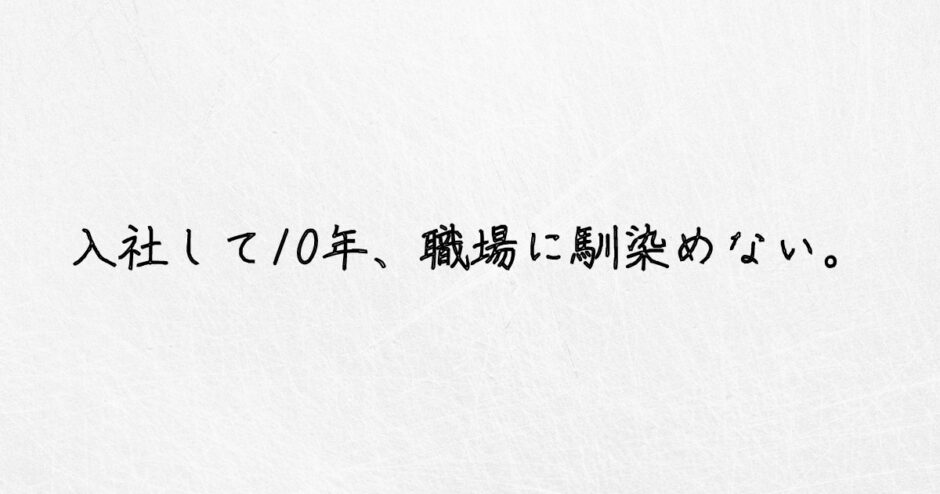 入社して10年、職場に馴染めない。